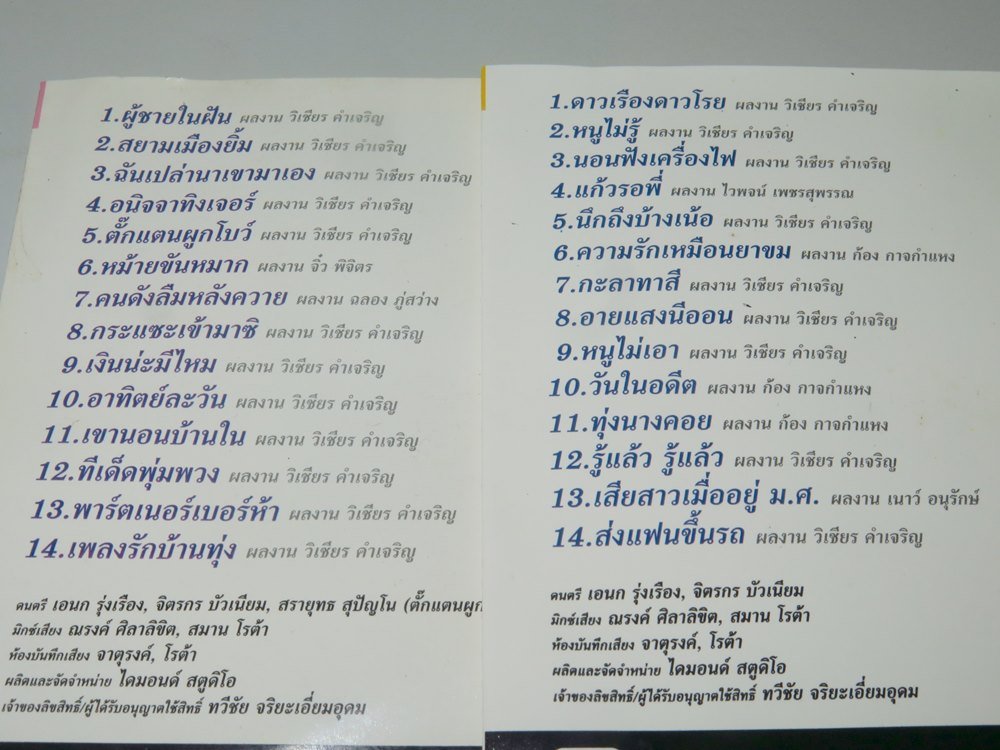 1.ผู้ชายในฝัน ผลงาน วิเชียร คำเจริญ
2.สยามเมืองยิ้ม ผลงาน วิเชียร คำเจริญ
3.ฉันเปล่านาเขามาเอง ผลงาน วิเชียร คำเจริญ
4.อนิจจาทิงเจอร์ ผลงาน วิเชียร คำเจริญ
5.ตั๊กแตนผูกโบว์ ผลงาน วิเชียร คำเจริญ
6.หม้ายขันหมาก ผลงาน จิ๋ว พิจิตร
7.คนดังลืมหลังควาย ผลงาน ฉลอง ภู่สว่าง
8.กระแซะเข้ามาซิ ผลงาน วิเชียร คำเจริญ
9.เงินน่ะมีไหม ผลงาน วิเชียร คำเจริญ
10.อาทิตย์ละวัน ผลงาน วิเชียร คำเจริญ
11.เขานอนบ้านใน ผลงาน วิเชียร คำเจริญ
12.ทีเด็ดพุ่มพวง ผลงาน วิเชียร คำเจริญ
13.พาร์ตเนอร์เบอร์ห้า ผลงาน วิเชียร คำเจริญ
14.เพลงรักบ้านทุ่ง ผลงาน วิเชียร คำเจริญ
ดนตรี เอนก รุ่งเรือง, จิตรกร บัวเนียม, สรายุทธ สุปัญโน (ตั๊กแตนผูก
มิกซ์เสียง ณรงค์ ศิลาลิขิต, สมาน โรต้า
ห้องบันทึกเสียง จาตุรงค์, โรต้า
ผลิตและจัดจำหน่าย ไดมอนด์ สตูดิโอ
เจ้าของลิขสิทธิ์/ผู้ได้รับอนุญาตใช้สิทธิ์ ทวีชัย จริยะเอี่ยมอุดม
1.ดาวเรืองดาวโรย ผลงาน วิเชียร คำเจริญ
2.หนูไม่รู้ ผลงาน วิเชียร คำเจริญ
3.นอนฟังเครื่องไฟ ผลงาน วิเชียร คำเจริญ
4.แก้วรอพี่ ผลงาน ไวพจน์ เพชรสุพรรณ
5.นึกถึงบ้างเน้อ ผลงาน วิเชียร คำเจริญ
6.ความรักเหมือนยาขม ผลงาน ก้อง กาจกำแหง
7.กะลาทาสี ผลงาน วิเชียร คำเจริญ
8.อายแสงนีออน ผลงาน วิเชียร คำเจริญ
9.หนูไม่เอา ผลงาน วิเชียร คำเจริญ
10.วันในอดีต ผลงาน ก้อง กาจกำแหง
11.ทุ่งนางคอย ผลงาน ก้อง กาจกำแหง
12.รู้แล้ว รู้แล้ว ผลงาน วิเชียร คำเจริญ
13.เสียสาวเมื่ออยู่ ม.ศ. ผลงาน เนาว์ อนุรักษ์
14.ส่งแฟนขึ้นรถ ผลงาน วิเชียร คำเจริญ
ดนตรี เอนก รุ่งเรือง, จิตรกร บัวเนียม
มิกซ์เสียง ณรงค์ ศิลาลิขิต, สมาน โรต้า
ห้องบันทึกเสียง จาตุรงค์, โรต้า
ผลิตและจัดจำหน่าย ไดมอนด์ สตูดิโอ
เจ้าของลิขสิทธิ์/ผู้ได้รับอนุญาตใช้สิทธิ์ ทวีชัย จริยะเอี่ยมอุดม